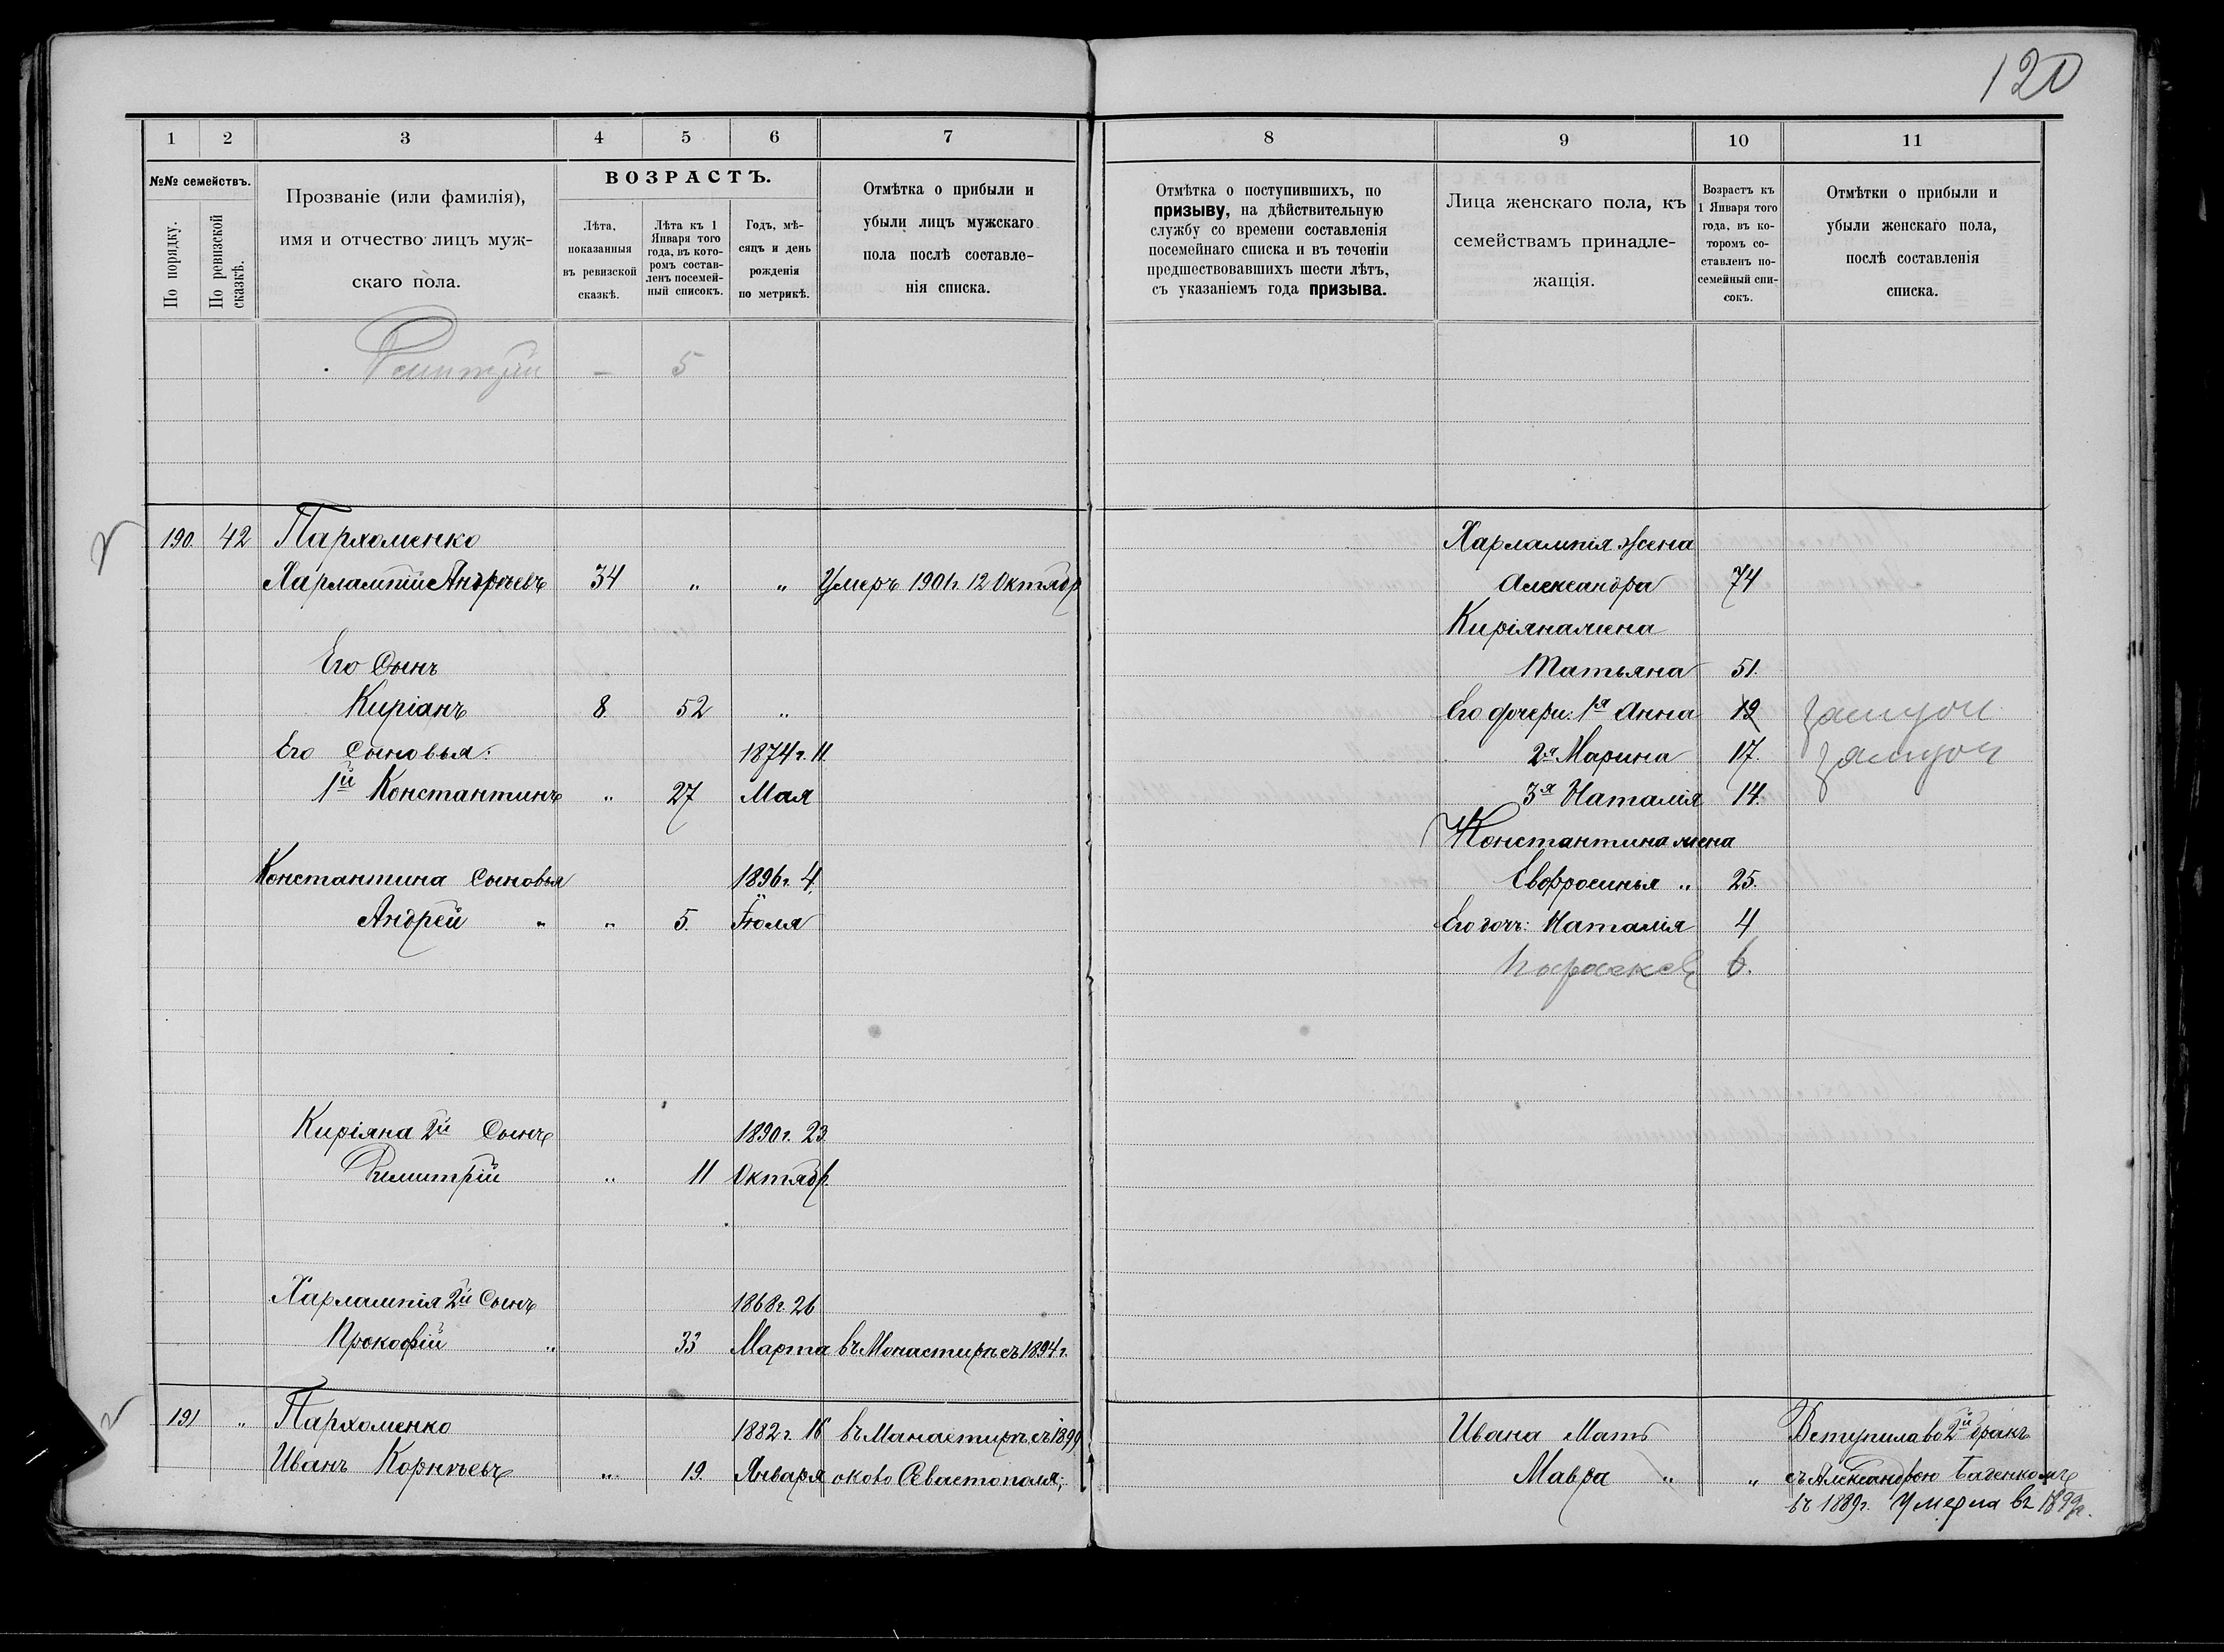 120
1 2 3 4 5 6 7
№№ семействъ.
По порядку.
По ревизской сказкѣ.
Прозваніе (или фамилія),
имя и отчество лицъ муж-
скаго пола.
ВОЗРАСТЪ.
Лѣта,
показанныя
въ ревизской
сказкѣ.
Лѣта къ 1
Января того
года, въ кото-
ромъ состав-
ленъ посемей-
ный списокъ.
Годъ, мѣ-
сяцъ и день
рожденія
по метрикѣ.
Отмѣтка о прибыли и
убыли лицъ мужскаго
пола послѣ составле-
нія списка.
Димитрій — 5
190. 42 Пархоменко
Харлампій Андреевъ 34 „ „ Умеръ 1901г. 12 Октябр
Его Сынъ
Киріанъ 8. 52 „
Его Сыновья: 1874г. 11
1й Константинъ „ 27 Мая
Константина Сыновья 1896г. 4.
Андрей „ „ 5. Іюля
Киріяна 2й Сынъ 1890г. 23
Димитрій „ 11 Октябр.
Харлампія 2й Сынъ 1868г. 26
Прокофій „ 33 Марта въ Монастирѣ съ 1894г.
191 „ Пархоменко 1882г. 16 въ Манастирѣ съ 1899
Иванъ Корнѣевъ „ 19. Января около Севастополя;
8 9 10 11
Отмѣтка о поступившихъ, по
призыву, на дѣйствительную
службу со времени составленія
посемейнаго списка и въ теченіи
предшествовавшихъ шести лѣтъ,
съ указаніемъ года призыва.
Лица женскаго пола, къ
семействамъ принадле-
жащія.
Возрастъ къ
1 Января того
года, въ ко-
торомъ со-
ставленъ по-
семейный спи-
сокъ.
Отмѣтки о прибыли и
убыли женскаго пола,
послѣ составленія
списка.
Харлампія жена
Александра 74
Киріяна жена
Татьяна 51.
Его дочери: 1я Анна 19 замуж
2я Марина 17. замуж
3я Наталія 14.
Константина жена
Евфросинья „ 25.
Его дочь: Наталія 4
Параскев 6.
Ивана Мать Вступила во 2й бракъ
Мавра „ „ съ Александрою Баденкомъ
въ 1889г. Умерла въ 1899г.